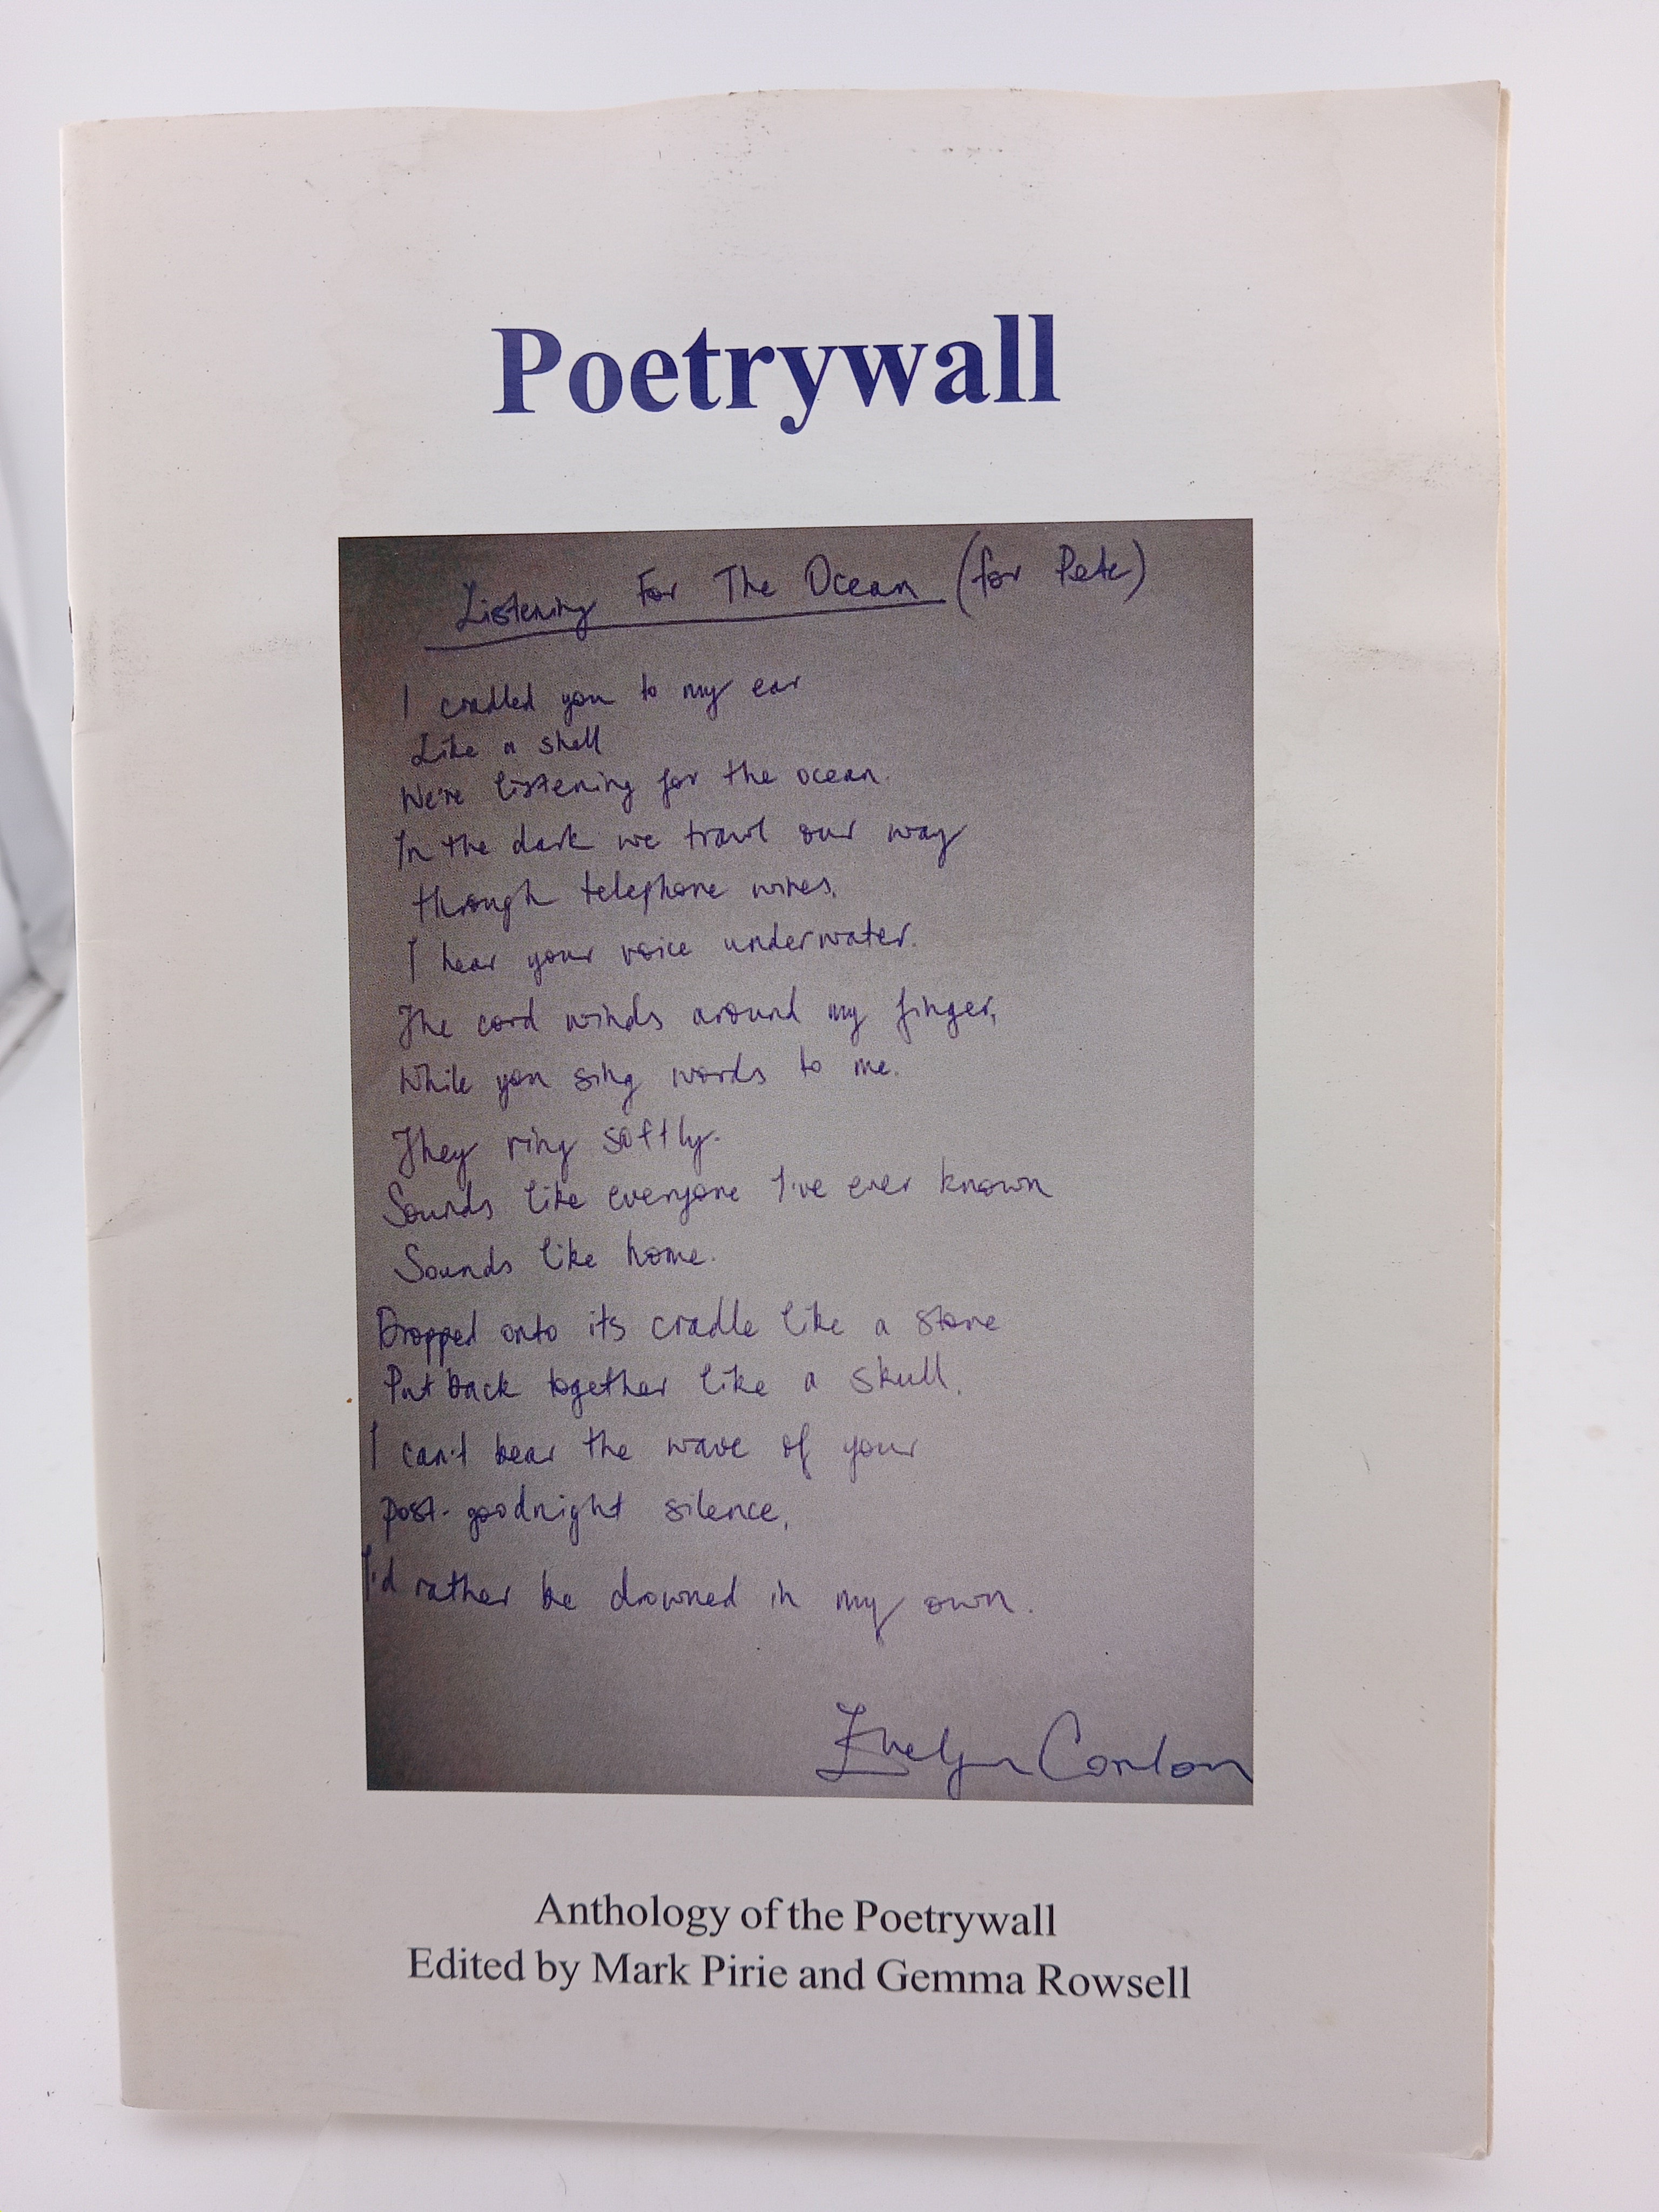 Poetrywall
Listening For The Ocean (for Pete)
I cradled you to my ear
Like a shell
We're listening for the ocean.
In the dark we trawl our way
through telephone wires.
I hear your voice underwater.
The cord winds around my finger,
While you sing words to me.
They ring softly.
Sounds like everyone I've ever known
Sounds like home.
Dropped onto its cradle like a stone
Put back together like a skull.
I can't bear the wave of your
post-goodnight silence,
I'd rather be drowned in my own.
Evelyn Conlon
Anthology of the Poetrywall
Edited by Mark Pirie and Gemma Rowsell